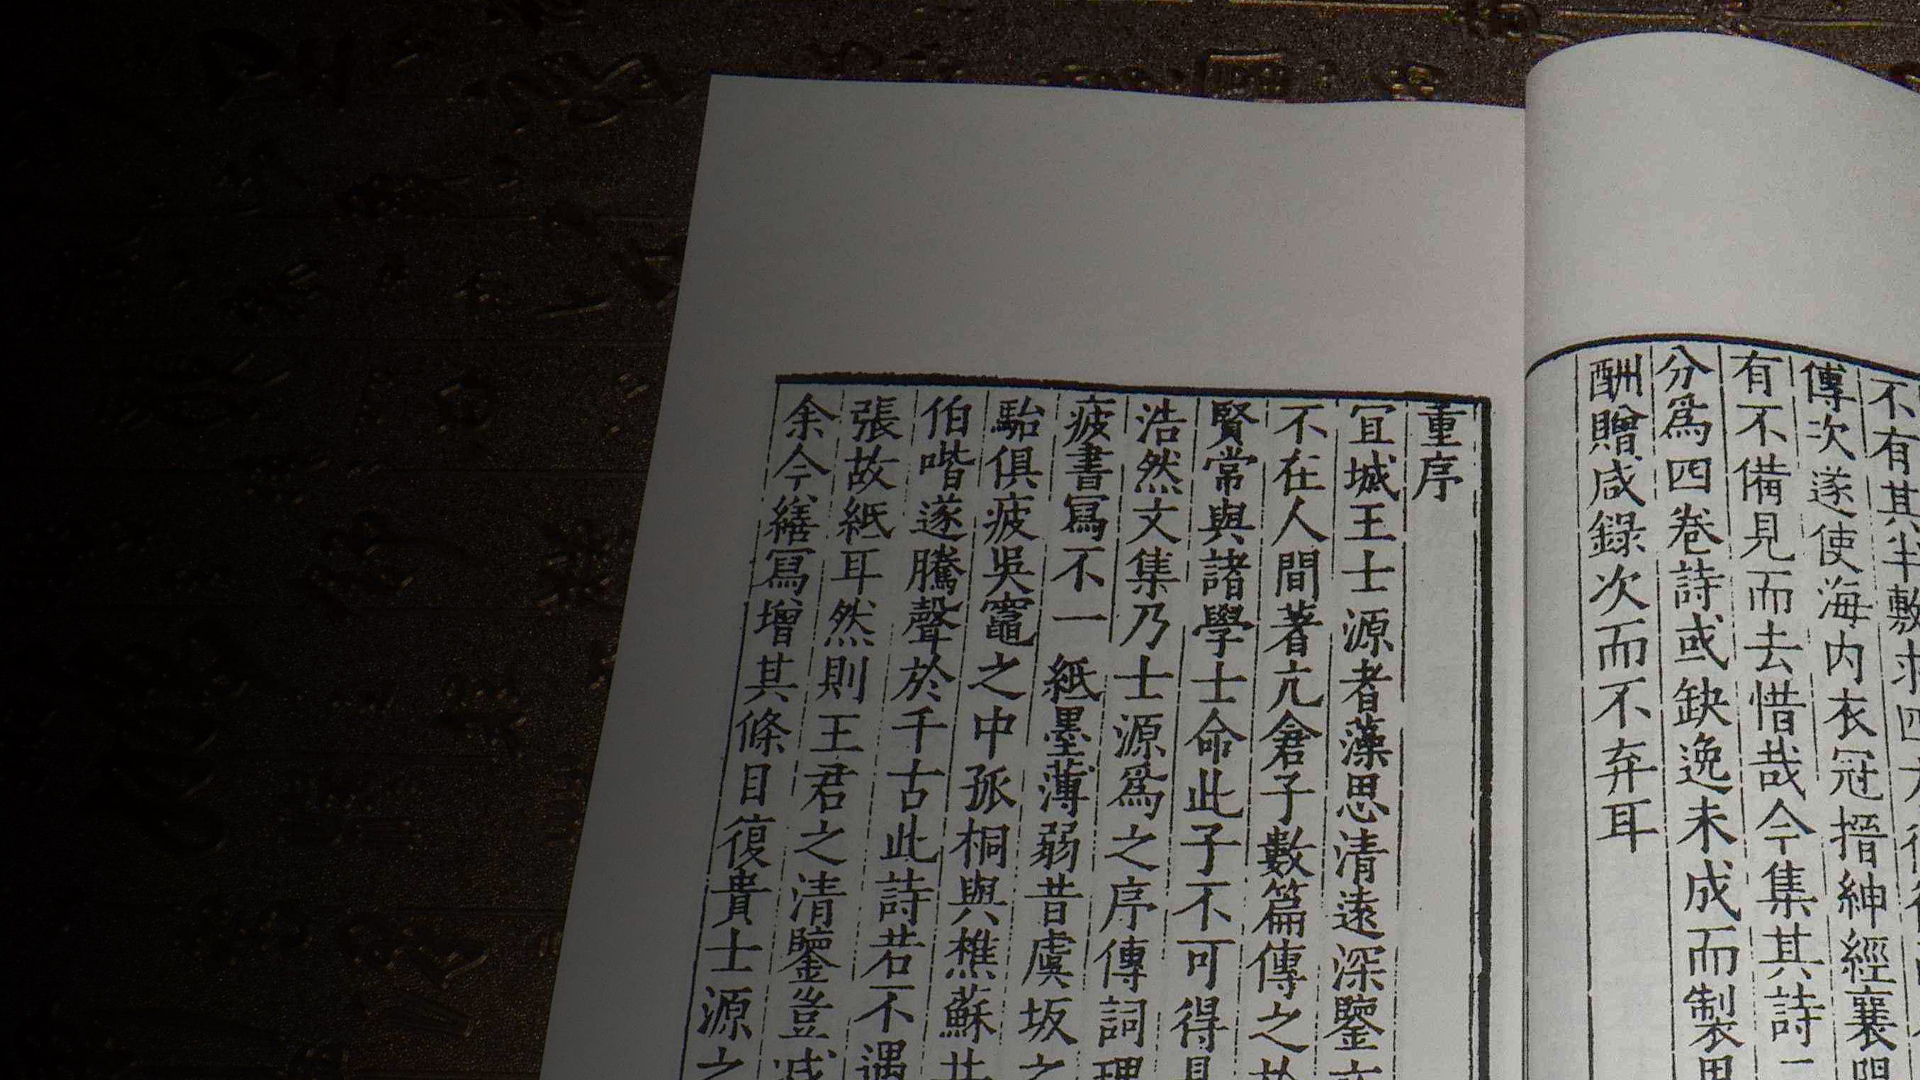 不有其半敷求四方往往
傳次遂使海內衣冠搢紳經襄陽
有不備見而去惜哉今集其詩二
分爲四卷詩或缺逸未成而製思
酬贈咸錄次而不弃耳
重序
宜城王士源者藻思清遠深鑒文
不在人間著亢倉子數篇傳之於
賢常與諸學士命此子不可得見
浩然文集乃士源爲之序傳詞理
疲書寫不一紙墨薄弱昔虞坂之
駘俱疲吳竈之中孤桐與樵蘇共
伯喈遂騰聲於千古此詩若不遇
張故紙耳然則王君之清鑒豈減
余今繕寫增其條目復貴士源之